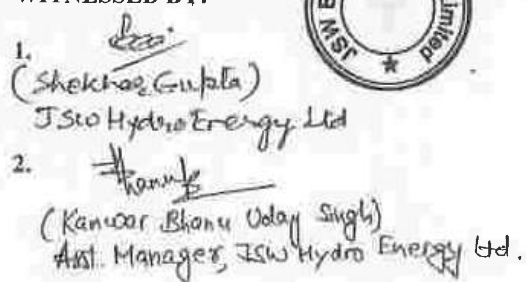 WITNESSED BY:
1.
(Shekhar Gupta)
JSW Hydro Energy Ltd
2.
(Kanwar Bhanu Uday Singh)
Asst. Manager, JSW Hydro Energy Ltd.
JSW E
Limited